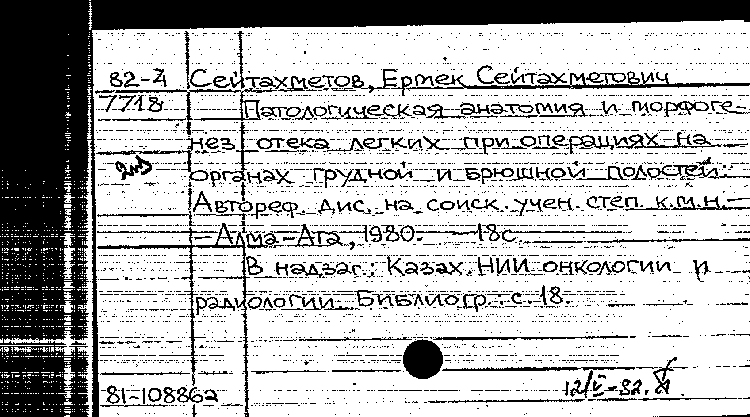 82-4 Сейтахметов, Ермек Сейтахметович
7718 Патологическая анатомия и морфоге-
нез отека легких при операциях на
органах грудной и брюшной полостей:
Автореф. дис. на соиск. учен. степ. к.м.н.-
-Алма-Ата, 1980. - 18с.
В надзаг.: Казах. НИИ онкологии и
радиологии. Библиогр.: с. 18.
81-108862 12/V-82.